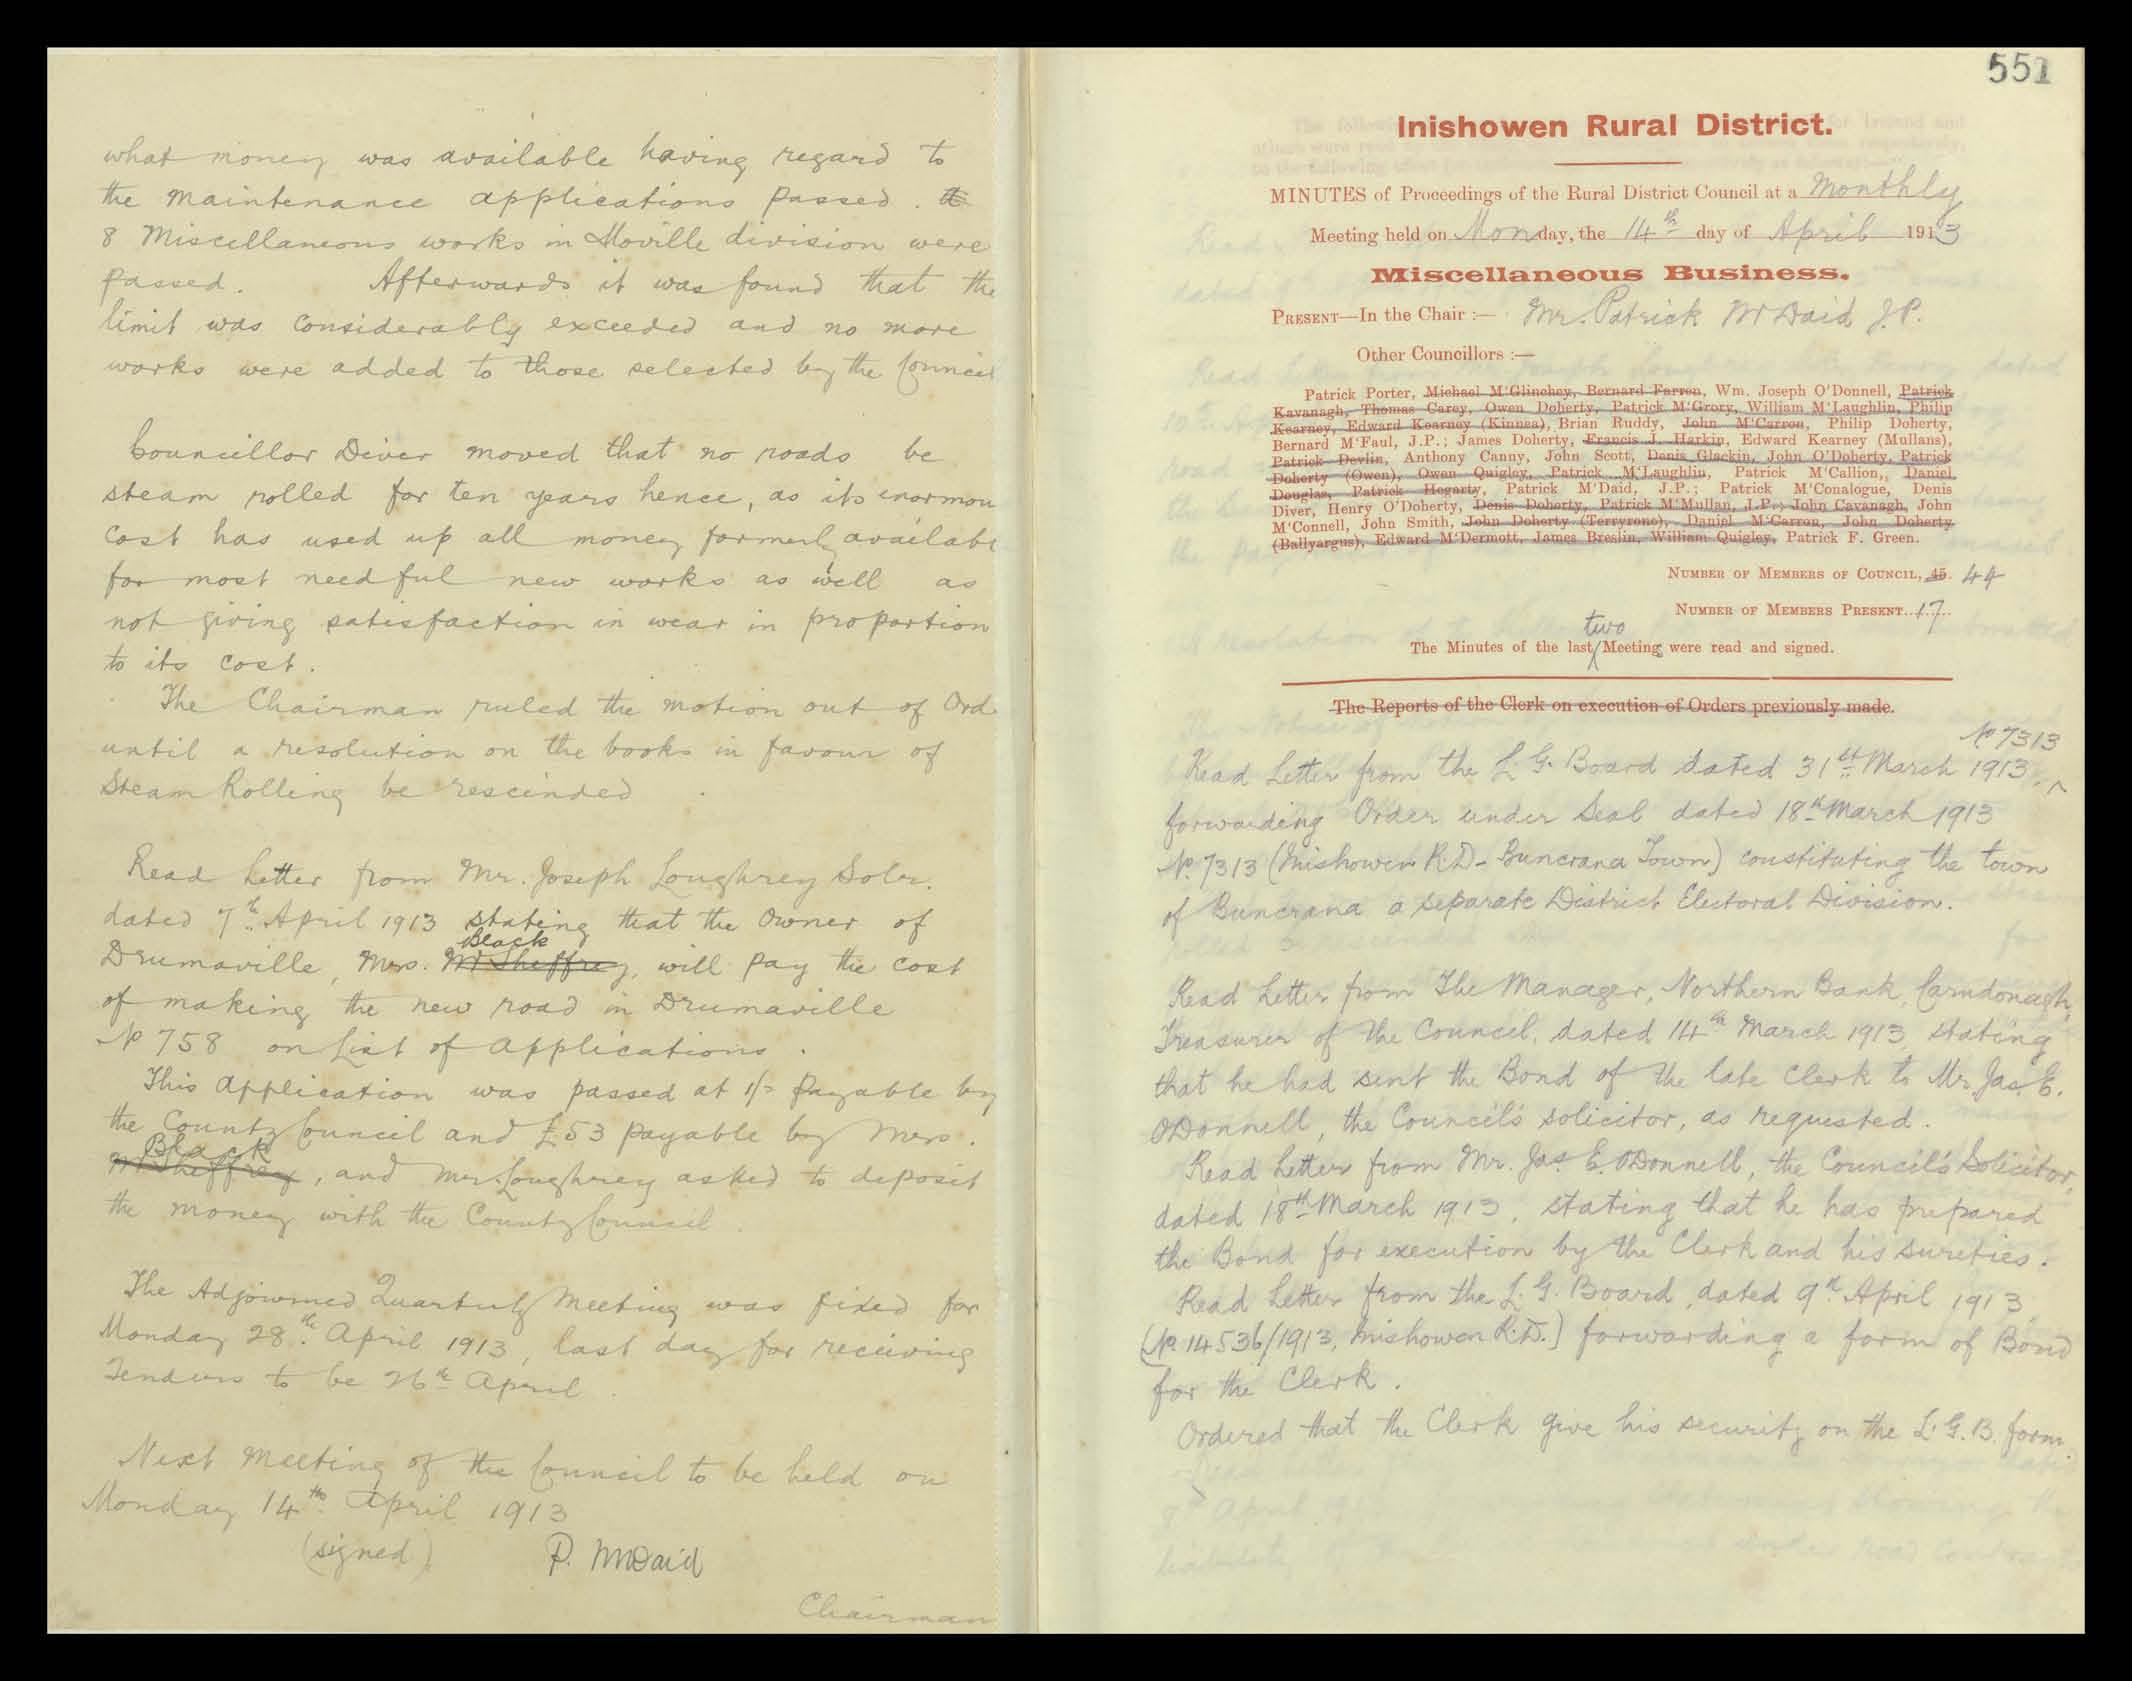 what money was available having regard to
the maintenance applications passed. th
8 Miscellaneous works in Moville division were
passed. Afterwards it was found that the
limit was considerably exceeded and no more
works were added to those selected by the Council
Councillor Diver moved that no roads be
steam rolled for ten years hence, as its enormou
cost has used up all money formerly availabl
for most needful new works as well as
not giving satisfaction in wear in proportion
to its cost.
The Chairman ruled the motion out of Ord
until a resolution on the books in favour of
Steam Rolling be rescinded.
Read Letter from Mr. Joseph Loughrey Solr.
dated 7th April 1913 stating that the Owner of
Black
Drumaville, Mrs. McSheffrey, will pay the cost
of making the new road in Drumaville
No 758 on List of applications.
This application was passed at 1/- payable by
the County Council and £53 payable by Mrs.
Black
McSheffrey, and Mr. Loughrey asked to deposit
the money with the County Council
The Adjourned Quarterly Meeting was fixed for
Monday 28th April 1913, last day for receiving
Tenders to be 26th April.
Next meeting of the Council to be held on
Monday 14th April 1913
(signed) P. McDaid
Chairman
551
Inishowen Rural District.
MINUTES of Proceedings of the Rural District Council at a Monthly
Meeting held on Monday, the 14th day of April 1913
Miscellaneous Business.
PRESENT—In the Chair :— Mr. Patrick McDaid J.P.
Other Councillors :—
Patrick Porter, Michael M'Glinchey, Bernard Farren, Wm. Joseph O'Donnell, Patrick
Kavanagh, Thomas Carey, Owen Doherty, Patrick M'Grory, William M'Laughlin, Philip
Kearney, Edward Kearney (Kinnea), Brian Ruddy, John M'Carron, Philip Doherty,
Bernard M'Faul, J.P.; James Doherty, Francis J. Harkin, Edward Kearney (Mullans),
Patrick Devlin, Anthony Canny, John Scott, Denis Glackin, John O'Doherty, Patrick
Doherty (Owen), Owen Quigley, Patrick M'Laughlin, Patrick M'Callion, Daniel
Douglas, Patrick Hegarty, Patrick M'Daid, J.P.; Patrick M'Conalogue, Denis
Diver, Henry O'Doherty, Denis Doherty, Patrick M'Mullan, J.P.; John Cavanagh, John
M'Connell, John Smith, John Doherty (Terryrone), Daniel M'Carron, John Doherty
(Ballyargus), Edward M'Dermott, James Breslin, William Quigley, Patrick F. Green.
NUMBER OF MEMBERS OF COUNCIL, 45. 44
NUMBER OF MEMBERS PRESENT..17..
two
The Minutes of the last Meetings were read and signed.
The Reports of the Clerk on execution of Orders previously made.
No 7313
Read Letter from the L. G. Board dated 31st March 1913,
forwarding Order under Seal dated 18th March 1913
No. 7313 (Inishowen R.D - Buncrana Town) constituting the town
of Buncrana a separate District Electoral Division.
Read Letter from The Manager, Northern Bank, Carndonagh,
Treasurer of the Council, dated 14th March 1913, stating
that he had sent the Bond of the late Clerk to Mr. Jas. E.
O'Donnell, the Council's solicitor, as requested.
Read Letter from Mr. Jas. E. O'Donnell, the Council's Solicitor,
dated 18th March 1913, stating that he has prepared
the Bond for execution by the Clerk and his sureties.
Read Letter from the L. G. Board, dated 9th April 1913
(No. 14536/1913, Inishowen R.D.) forwarding a form of Bond
for the Clerk.
Ordered that the Clerk give his security on the L. G. B. form.